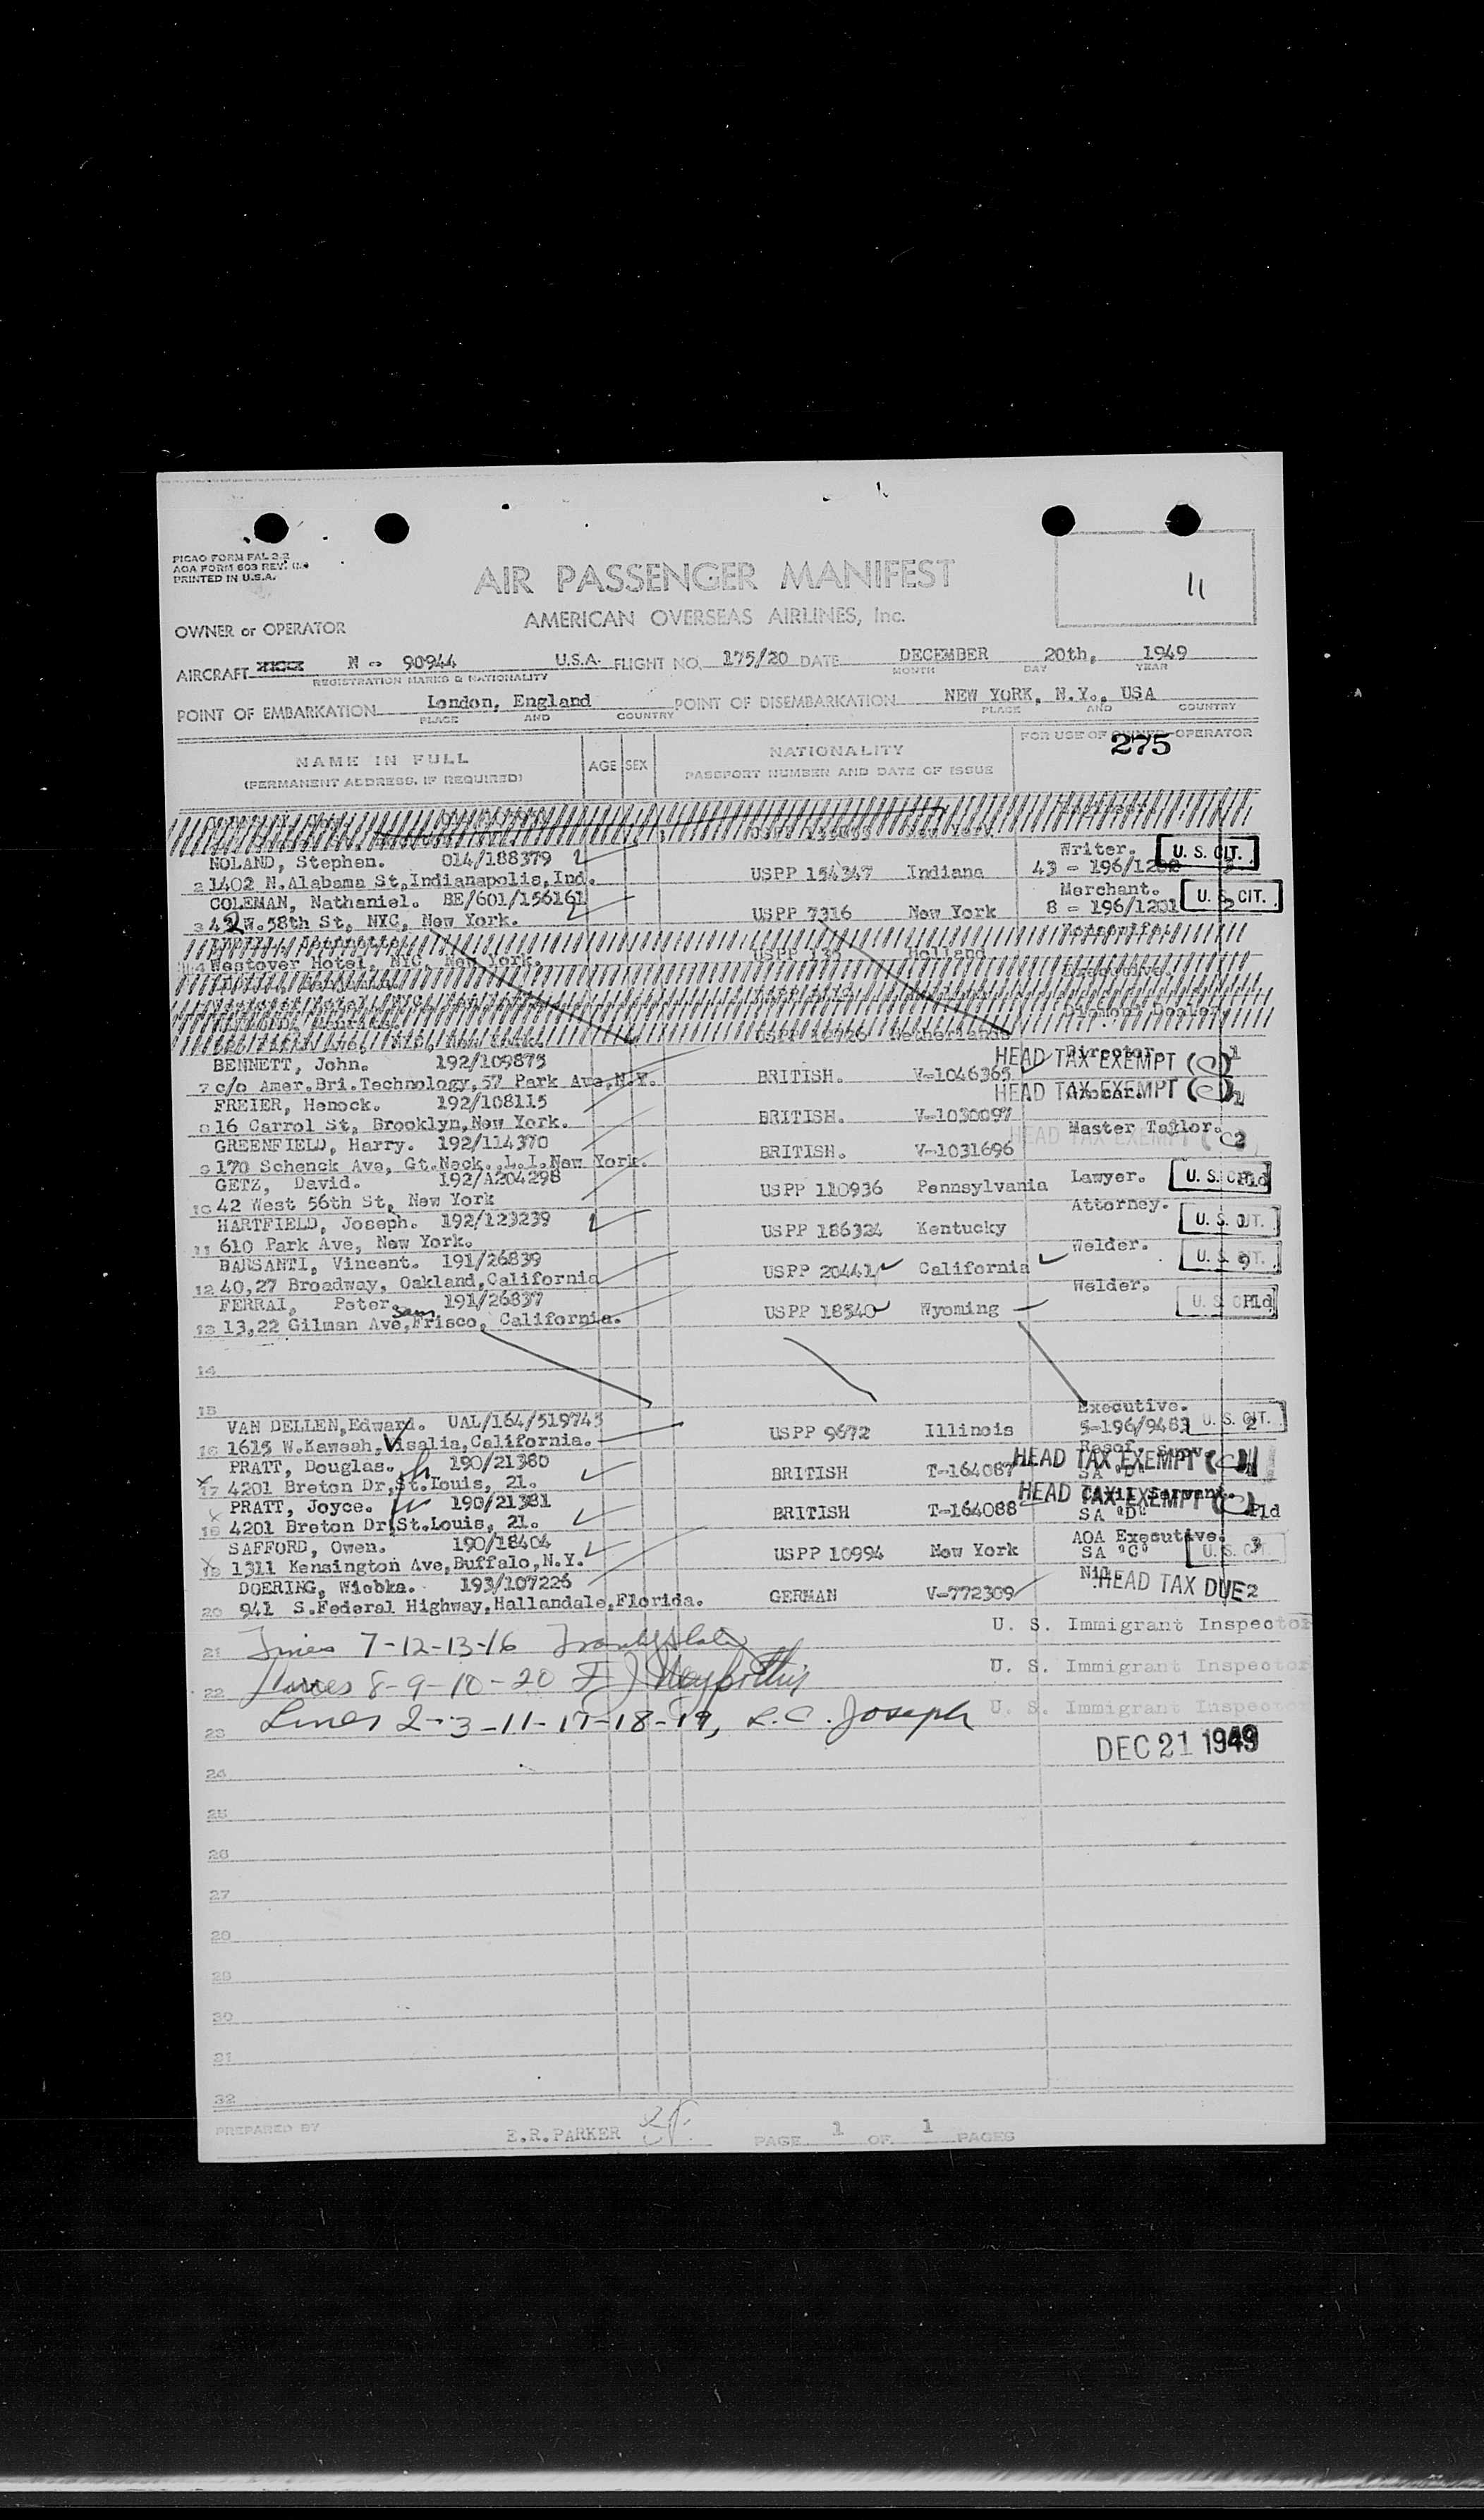 PICAO FORM FAL 3.2
AOA FORM 603 REV.
PRINTED IN U.S.A.
AIR PASSENGER MANIFEST
11
AMERICAN OVERSEAS AIRLINES, Inc.
OWNER or OPERATOR
AIRCRAFT N - 90944 U.S.A. FLIGHT NO. 175/20 DATE DECEMBER 20th, 1949
REGISTRATION MARKS & NATIONALITY MONTH DAY YEAR
POINT OF EMBARKATION London, England POINT OF DISEMBARKATION NEW YORK, N.Y., USA
PLACE AND COUNTRY PLACE AND COUNTRY
NAME IN FULL AGE SEX NATIONALITY FOR USE OF OWNER OPERATOR
275
(PERMANENT ADDRESS, IF REQUIRED) PASSPORT NUMBER AND DATE OF ISSUE
NOLAND, Stephen. 014/188379 Writer. U. S. CIT.
2 1402 N.Alabama St, Indianapolis, Ind. USPP 154347 Indiana 43 - 196/1202
COLEMAN, Nathaniel. BE/601/156161 Merchant. U. S. CIT.
3 42 W.58th St, NYC, New York. USPP 7316 New York 8 - 196/1201 2
4 Westover Hotel, NYC, New York. USPP Holland
Executive.
Diamond Dealer.
USPP 12926 Netherlands
BENNETT, John. 192/109875 Director. HEAD TAX EXEMPT 1
7 c/o Amer.Bri.Technology, 57 Park Ave, N.Y. BRITISH. V-1046365
FREIER, Henock. 192/108115 HEAD TAX EXEMPT
8 16 Carrol St, Brooklyn, New York. BRITISH. V-1030097
GREENFIELD, Harry. 192/114370 Master Tailor. HEAD TAX EXEMPT 2
9 170 Schenck Ave, Gt.Neck. L.I.New York. BRITISH. V-1031696
GETZ, David. 192/A204298 Lawyer. U. S. CIT.
10 42 West 56th St, New York USPP 110936 Pennsylvania
HARTFIELD, Joseph. 192/123239 Attorney. U. S. CIT.
11 610 Park Ave, New York. USPP 186324 Kentucky
BARSANTI, Vincent. 191/26839 Welder. U. S. CIT. 9
12 40,27 Broadway, Oakland, California USPP 20441 California
FERRAI, Peter 191/26837 Welder. U. S. CIT. Pld
13 13,22 Gilman Ave, San Frisco, California. USPP 18540 Wyoming
14
15
VAN DELLEN, Edward. UAL/164/519743 Executive. U. S. CIT. 2
16 1615 W.Kaweah, Visalia, California. USPP 9672 Illinois 5-196/9483
PRATT, Douglas. 190/21380 HEAD TAX EXEMPT
17 4201 Breton Dr, St.Louis, 21. BRITISH T-164087 SA "D"
PRATT, Joyce. 190/21381 Civil Servant. HEAD TAX EXEMPT
18 4201 Breton Dr, St.Louis, 21. BRITISH T-164088 SA "D" Pld
SAFFORD, Owen. 190/18404 AOA Executive. U. S. CIT. 3
19 1311 Kensington Ave, Buffalo, N.Y. USPP 10994 New York SA "C"
DOERING, Wiebka. 193/107226 Nil. HEAD TAX DUE 2
20 941 S.Federal Highway, Hallandale, Florida. GERMAN V-772309
21 Lines 7-12-13-16 U. S. Immigrant Inspector
22 Lines 8-9-10-20 U. S. Immigrant Inspector
23 Lines 2-3-11-17-18-19, R.C. Joseph U. S. Immigrant Inspector
DEC 21 1949
24
25
26
27
28
29
30
31
32
PREPARED BY E.R.PARKER PAGE 1 OF 1 PAGES